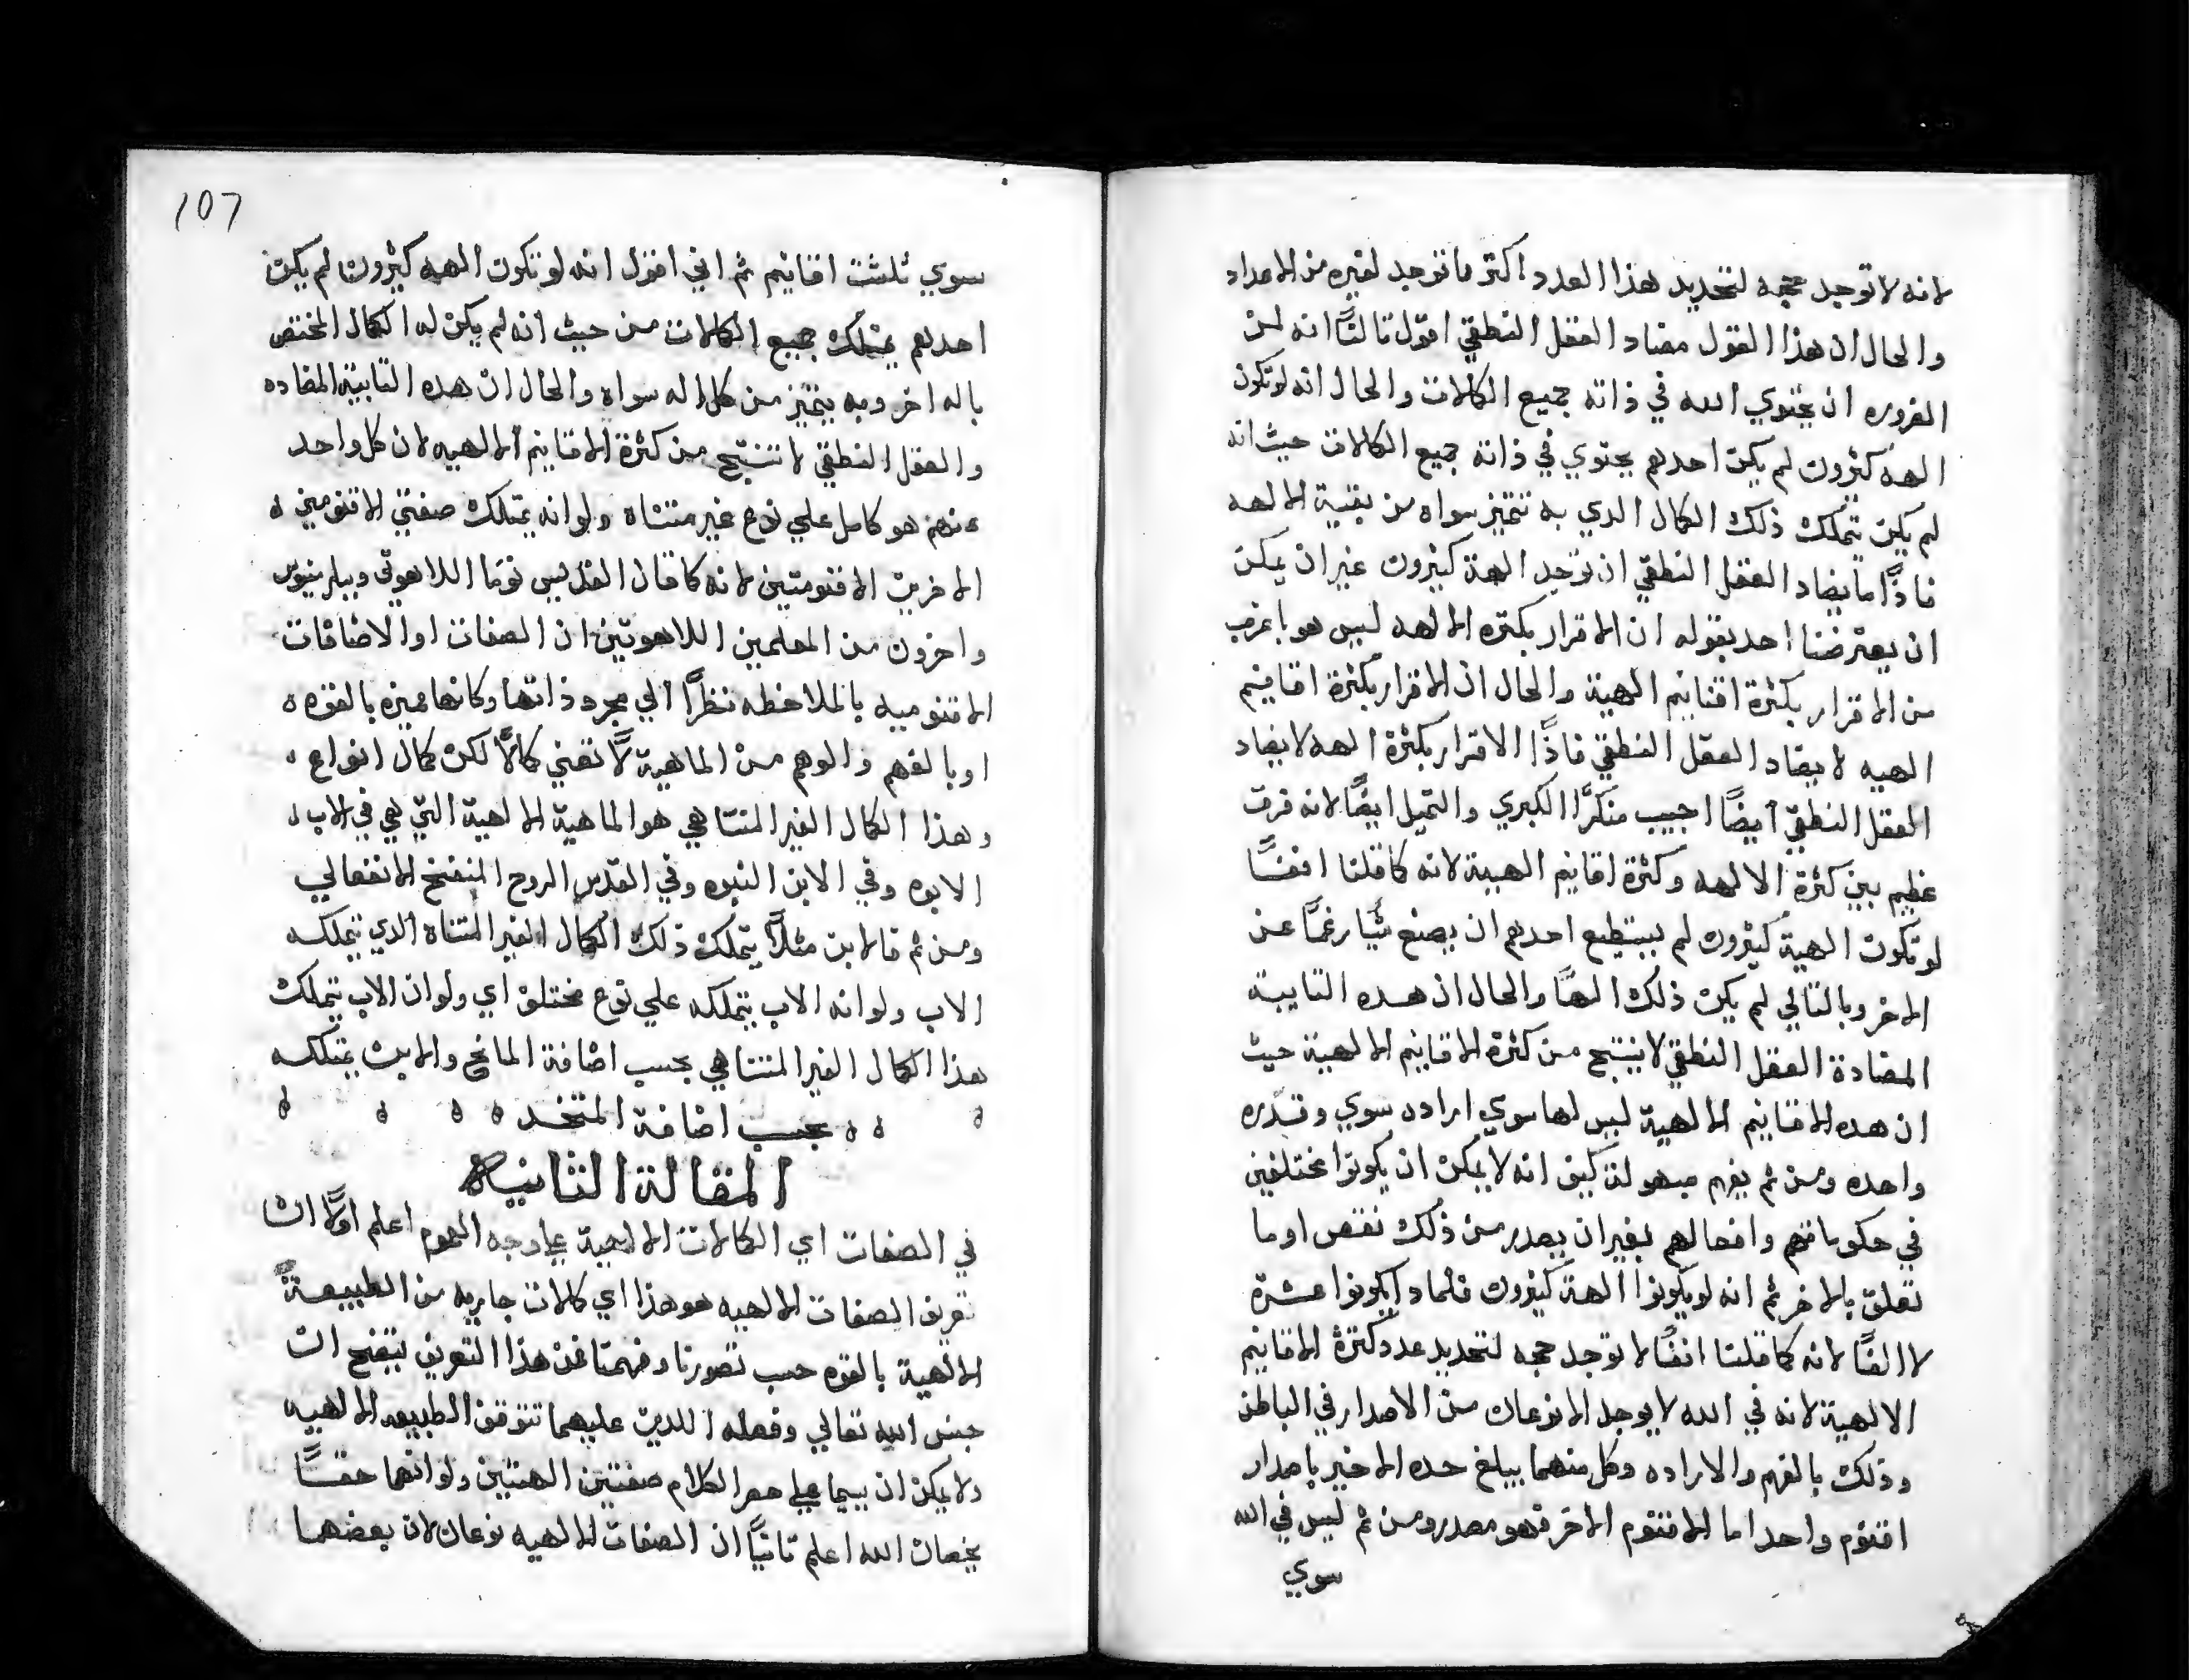 لانه لا توجد حجه لتحديد هذا العدد اكثر ما توجد لغيره من الاعداد
والحال ان هذا القول مضاد العقل النطقي اقول ثالثًا انه لمن
الضروره ان يحتوي الله في ذاته جميع الكمالات والحال انه لو تكون
الهة كثيرون لم يكن احدهم يحتوي في ذاته جميع الكمالات حيث انه
لم يكن يتملك ذلك الكمال الدي به تتميز سواه من بقية الالهه
فاذًا ما يضاد العقل النطقي ان توجد الهة كثيرون غير ان يمكن
ان يعترضنا احد بقوله ان الاقرار بكتره الالهه ليس هو باغرب
من الاقرار بكثرة اقانيم الهية والحال ان الاقرار بكثرة اقانيم
الهيه لا يضاد العقل النطقي فاذًا الاقرار بكثرة الهه لا يضاد
العقل النطقي ايضًا اجيب منكرًا الكبري والتمثيل ايضًا لانه فرق
عظيم بين كثرة الالهه وكثرة اقانيم الهية لانه كما قلنا انفًا
لو تكون الهية كثيرون لم يستطيع احدهم ان يصنع شيًا رغمًا عن
الاخر وبالتالي لم يكن ذلك الهًا والحال ان هده التاييبة
المضادة العقل النطقي لا ينتج من كثرة الاقانيم الالهية حيث
ان هده الاقانيم الالهية ليس لها سوي اراده سوي وقدره
واحده ومن ثم يفهم بسهولة كيف انه لا يمكن ان يكونوا مختلفين
في حكوماتهم وافعالهم بغير ان يصدر من ذلك نقص او ما
تعلق بالاخر ثم انه لو يكونوا الهة كثيرون فلماد ايكونوا عشرة
لا الفًا لانه كما قلنا انفًا لا توجد حجه لتحديد عدد كترة الاقانيم
الالهية لانه في الله لا يوجد الا نوعان من الاصدار في الباطن
وذلك بالفهم والاراده وكل منهما يبلغ حده الاخير باصدار
اقنوم واحد اما الاقنوم الاخر فهو مصدر ومن ثم ليس في الله
سوي
107
سوي ثلثت اقانيم ثم اني اقول انه لو تكون الهيه كثيرون لم يكن
احدهم يمتلك جميع الكمالات من حيث انه لم يكن له الكمال المختص
باله اخر وبه يتميز من كل اله سواه والحال ان هده التابيّة المضاده
والعقل النطقي لا تنتج من كثرة الاقانيم الالهيه لان كل واحد
منهم هو كامل علي نوع غير متناه ولو انه يمتلك صفتي الاقنومين
الاخرين الاقنومتين لانه كما قال القديس توما اللاهوتي وبيلرمينوس
واخرون من المعلمين اللاهوتين ان الصفات او الاضافات
الاقنوميه بالملاحظه نظرًا الي مجرد ذاتها وكانها مميزه بالقوه
او بالفهم والوهم من الماهية لا تعني كمالًا لكن كمال انواع
وهذا الكمال الغير المتناهي هو الماهية الالهية التي هي في الاب
الابوه وفي الابن البنوه وفي القدس الروح المنفخ الانفعالي
ومن ثم فالابن مثلًا يتملك ذلك الكمال الغير المتناه الدي يتملكه
الاب ولو انه الاب يتملكه علي نوع مختلف اي ولو ان الاب يتملك
هذا الكمال الغير المتناهي بحسب اضافة المانح والابن يمتلكه
بحسب اضافة المتخد
المقالة الثانية
في الصفات اي الكمالات الالهية علي وجه العموم اعلم اولًا ان
تعريف الصفات الالهيه هو هذا اي كمالات جايره من الطبيعة
الالهية بالقوه حسب تصورنا وفهمنا فمن هذا التعريف يتضح ان
جنس الله تعالي وفعله اللدين عليهما تتوقف الطبيعه الالهيه
ولا يمكن ان يسيما علي حصر الكلام صفتين الهتين ولو انهما حقًا
يخصان الله اعلم ثانيًا ان الصفات الالهيه نوعان لان بعضهما